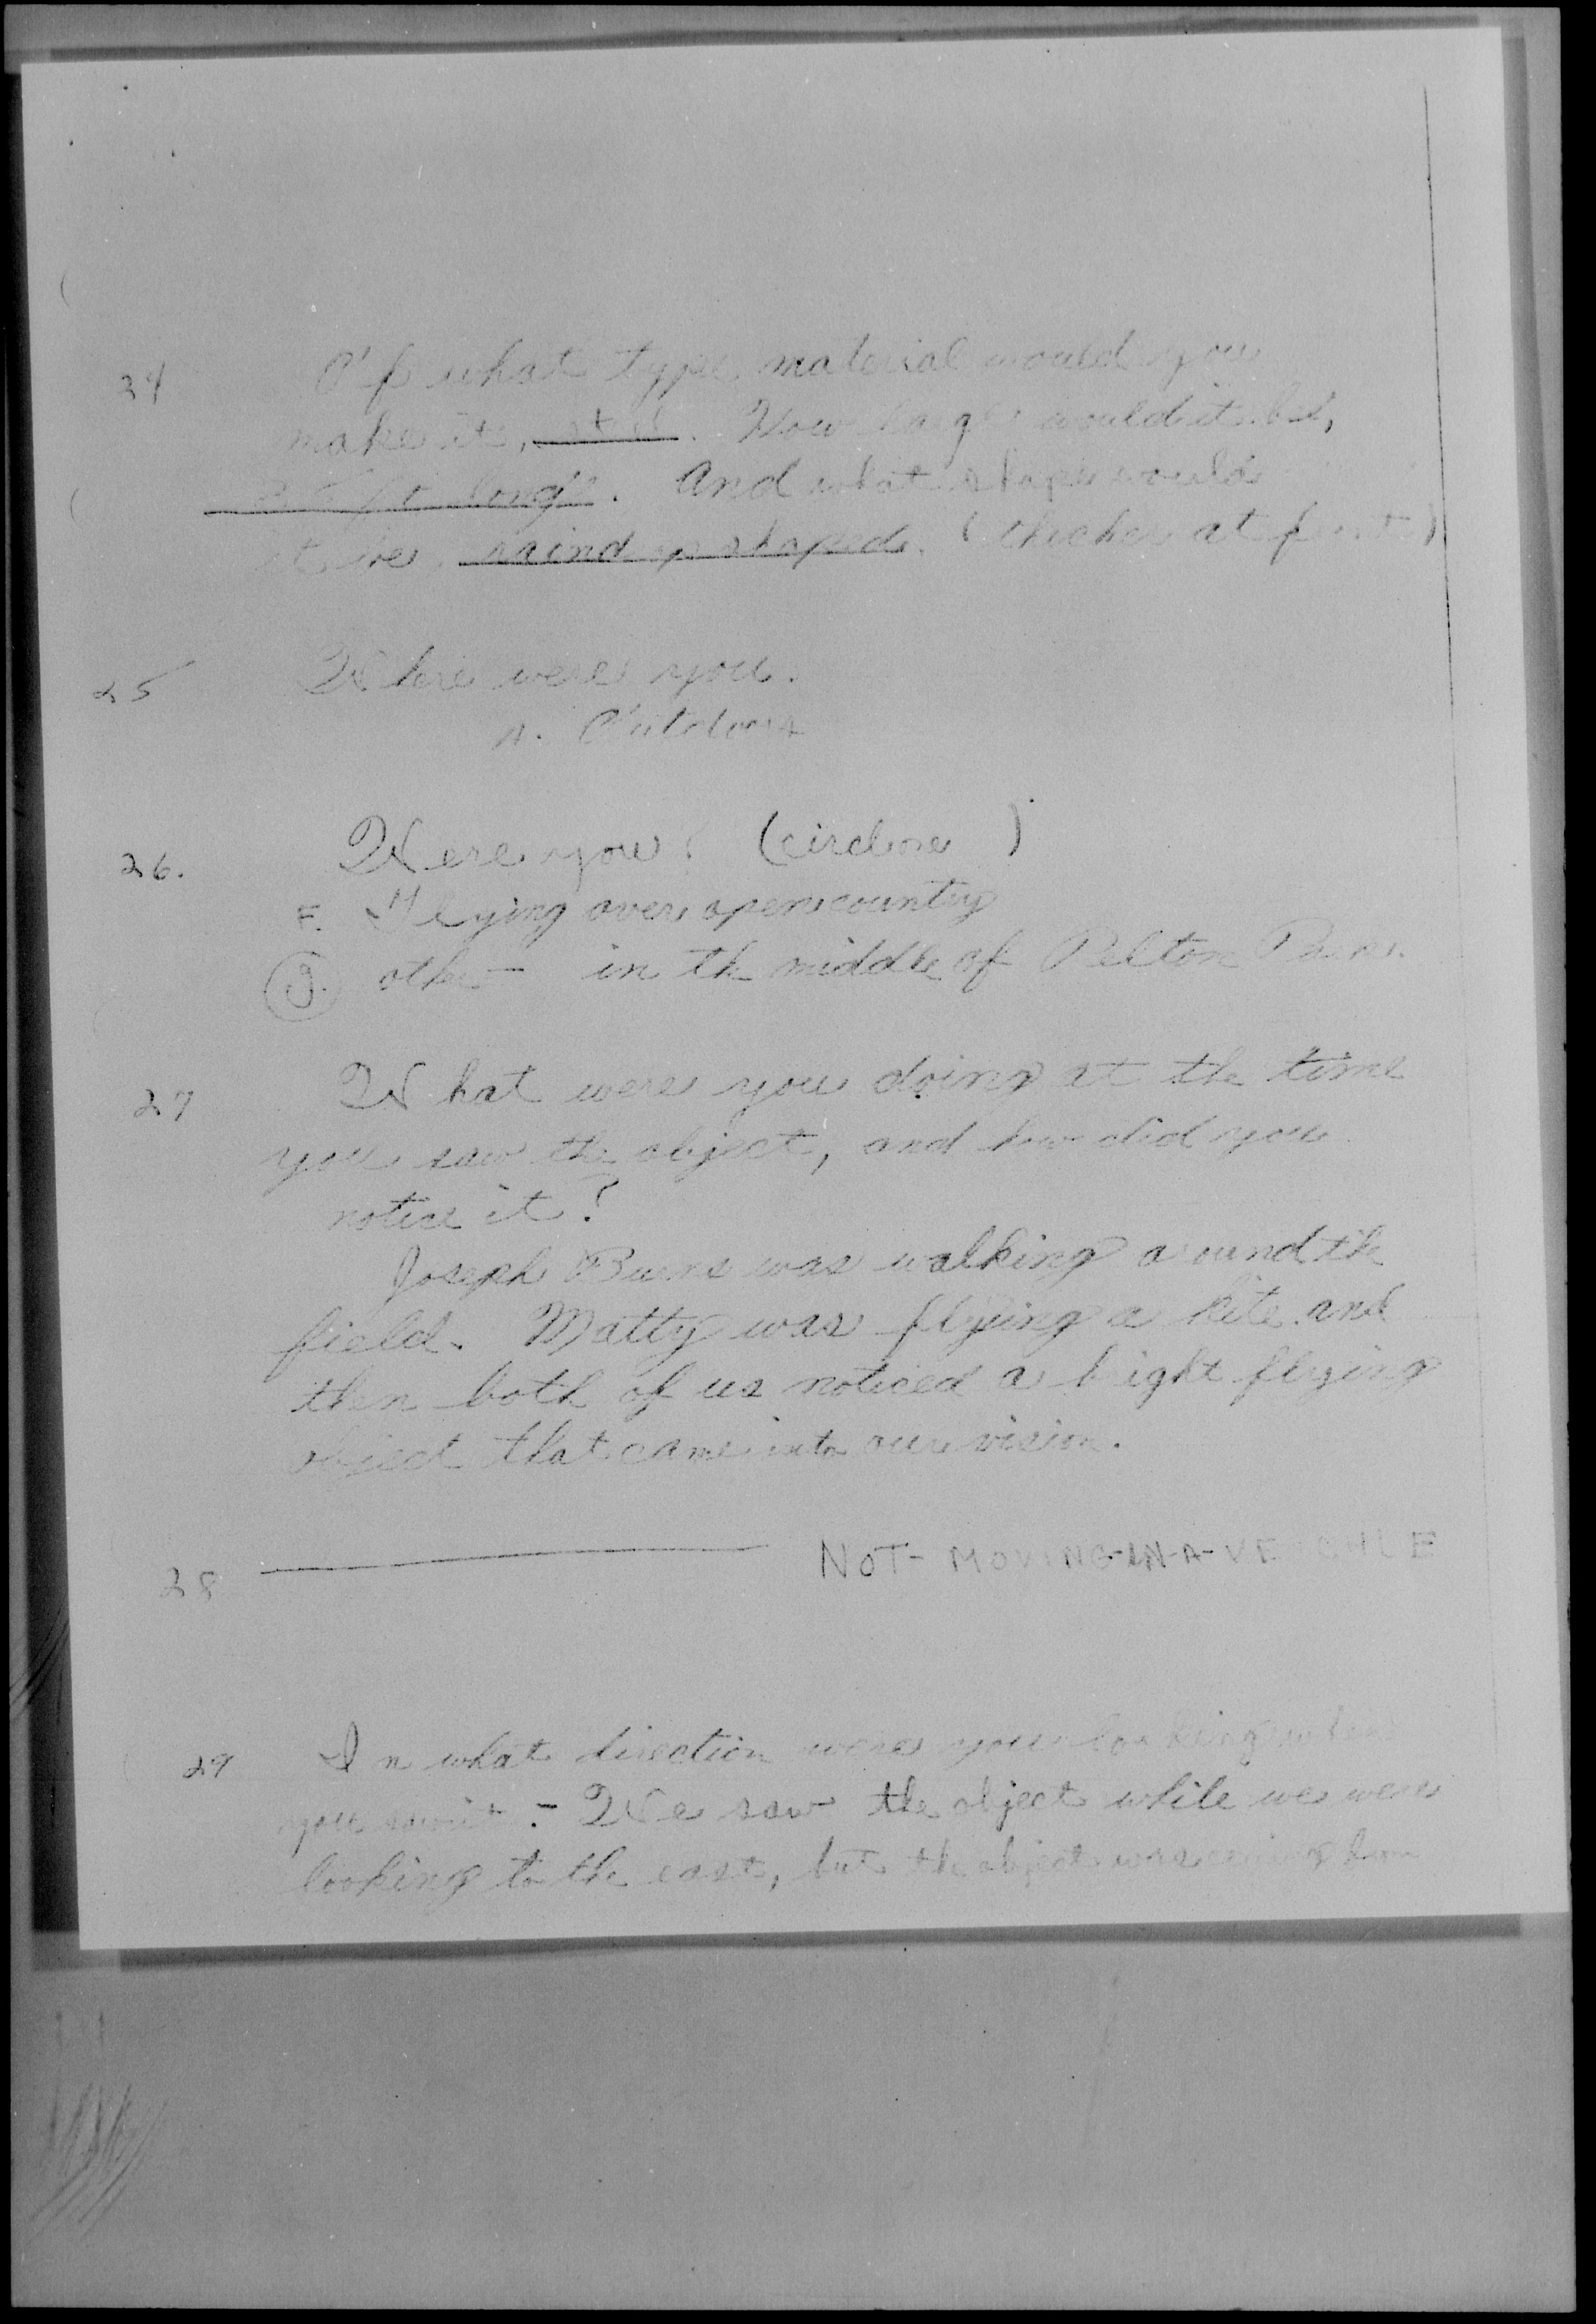 24 Of what type material would you
make it, steel. How large would it be,
ft long. And what shape would
it be, shaped. (thicker at front)
25 Where were you.
A. Outdoors
26. Were you? (circle one)
F. Flying over open country
G. other - in the middle of Pelton
27 What were you doing at the time
you saw the object, and how did you
notice it?
Joseph Burns was walking around the
field. Matty was flying a kite and
then both of us noticed a bright flying
object that came into our vision.
28 NOT-MOVING-IN-A-
29 In what direction were you looking when
you saw it. - We saw the object while we were
looking to the east, but the object was coming from